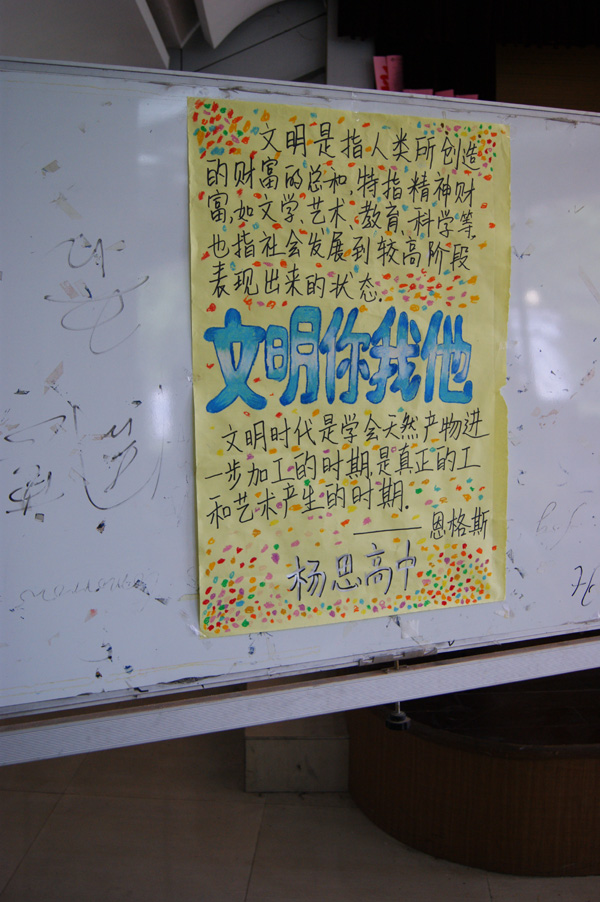 文明是指人类所创造
的财富的总和,特指精神财
富,如文学、艺术、教育、科学等
也指社会发展到较高阶段
表现出来的状态.
文明你我他
文明时代是学会天然产物进
一步加工的时期,是真正的工
和艺术产生的时期.
——恩格斯
杨思高中